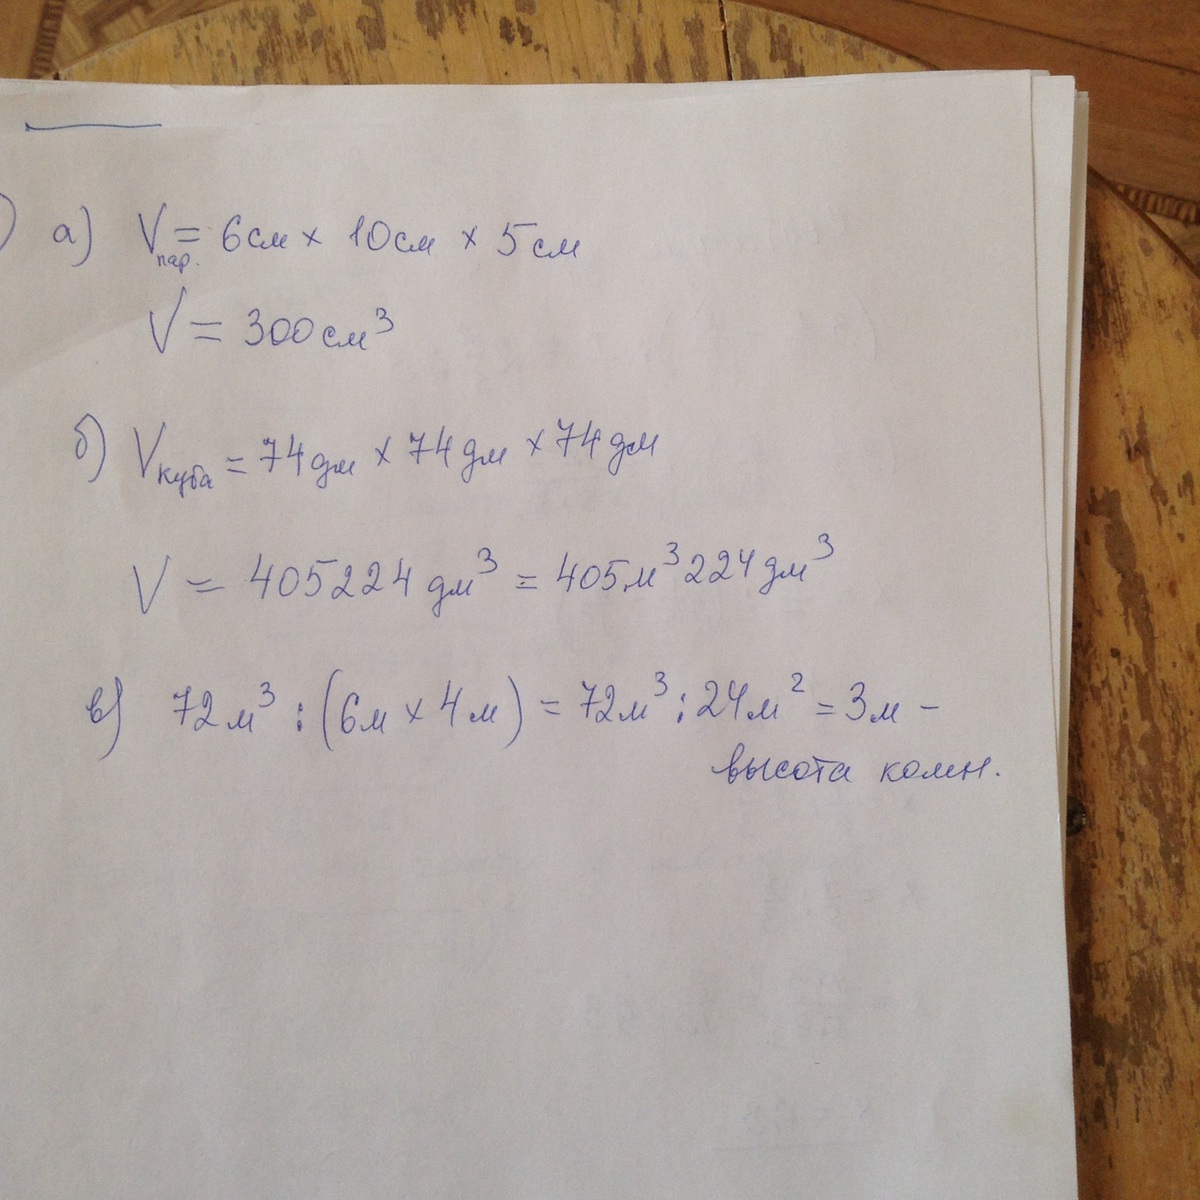 ) а) Vпар. = 6см × 10см × 5см
V = 300см³
б) Vкуба = 74дм × 74дм × 74дм
V = 405224 дм³ = 405м³ 224дм³
в) 72м³ : (6м × 4м) = 72м³ : 24м² = 3м –
высота комн.